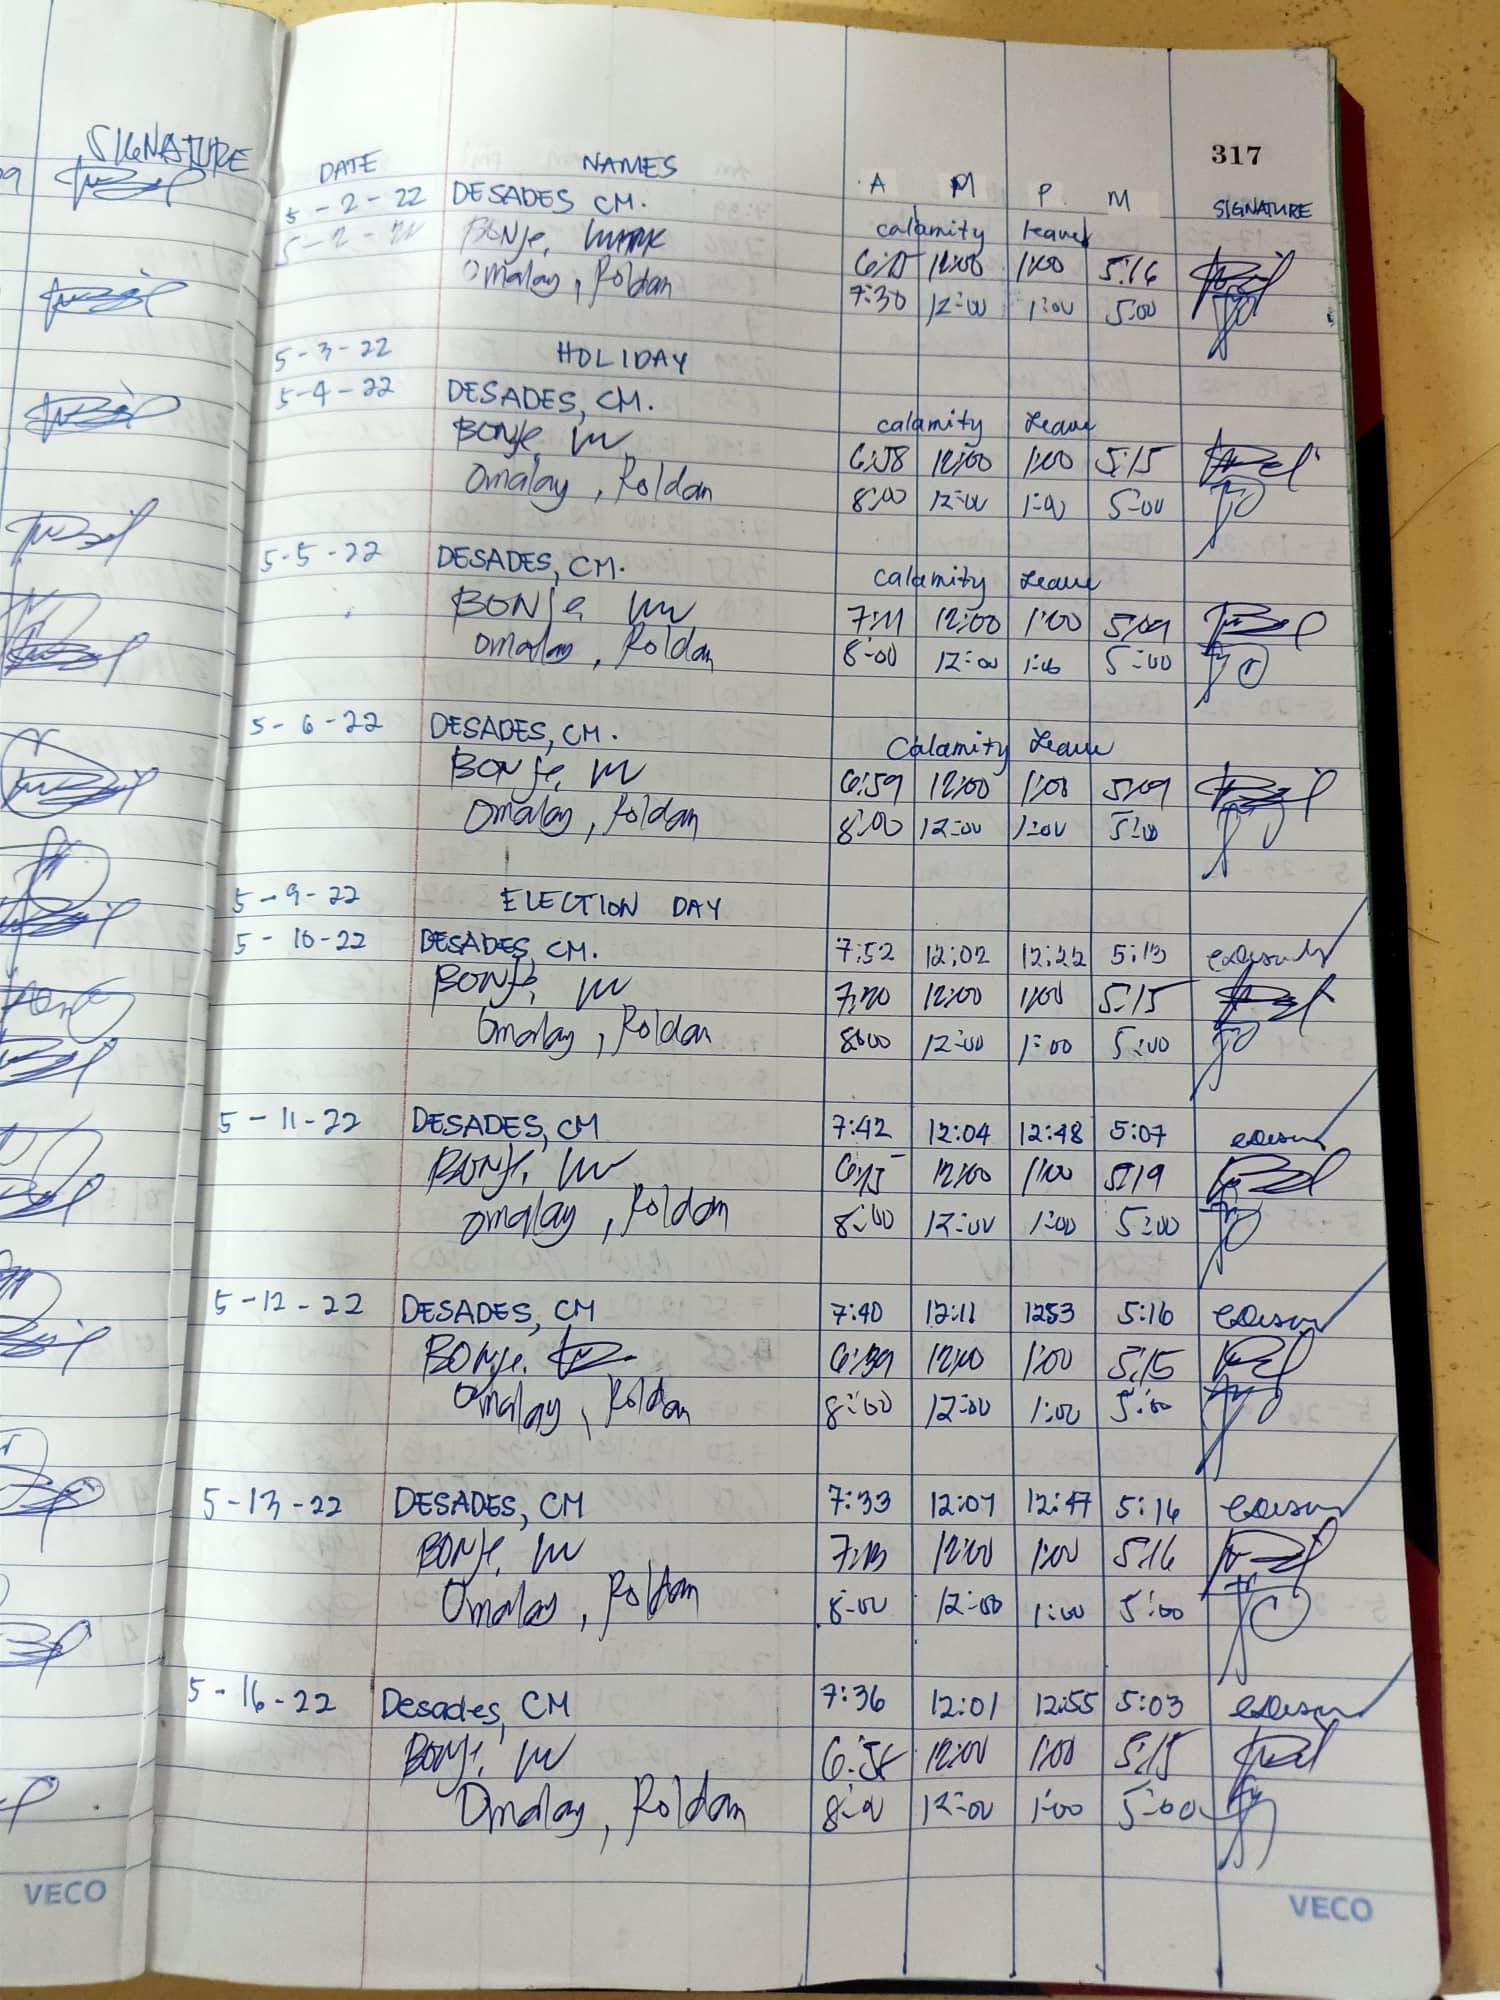 SIGNATURE
317
DATE NAMES A M P M SIGNATURE
5-2-22 DESADES CM. calamity leave
5-2-22 BONJE, 12:00 1:00 5:16
Omalay, Roldan 7:30 12:00 1:00 5:00
5-3-22 HOLIDAY
5-4-22 DESADES, CM. calamity Leave
BONJE, 6:58 12:00 1:00 5:15
Omalay, Roldan 8:00 12:00 1:00 5:00
5-5-22 DESADES, CM. calamity Leave
BONJE, 7:11 12:00 1:00 5:09
Omalay, Roldan 8:00 12:00 1:00 5:00
5-6-22 DESADES, CM. Calamity Leave
BONJE, 6:59 12:00 1:00 5:09
Omalay, Roldan 8:00 12:00 1:00 5:00
5-9-22 ELECTION DAY
5-10-22 DESADES, CM. 7:52 12:02 12:22 5:13
BONJE, 12:00 1:00 5:15
Omalay, Roldan 8:00 12:00 1:00 5:00
5-11-22 DESADES, CM 7:42 12:04 12:48 5:07
BONJE, 12:00 1:00 5:19
Omalay, Roldan 8:00 12:00 1:00 5:00
5-12-22 DESADES, CM 7:40 12:11 1253 5:16
BONJE. 6:39 12:00 1:00 5:15
Omalay, Roldan 8:00 12:00 1:00 5:00
5-13-22 DESADES, CM 7:33 12:07 12:47 5:16
BONJE, 7:13 12:00 1:00 5:16
Omalay, Roldan 8:00 12:00 1:00 5:00
5-16-22 Desades, CM 7:36 12:01 12:55 5:03
BONJE, 6:58 12:00 1:00 5:15
Omalay, Roldan 8:00 12:00 1:00 5:00
VECO VECO